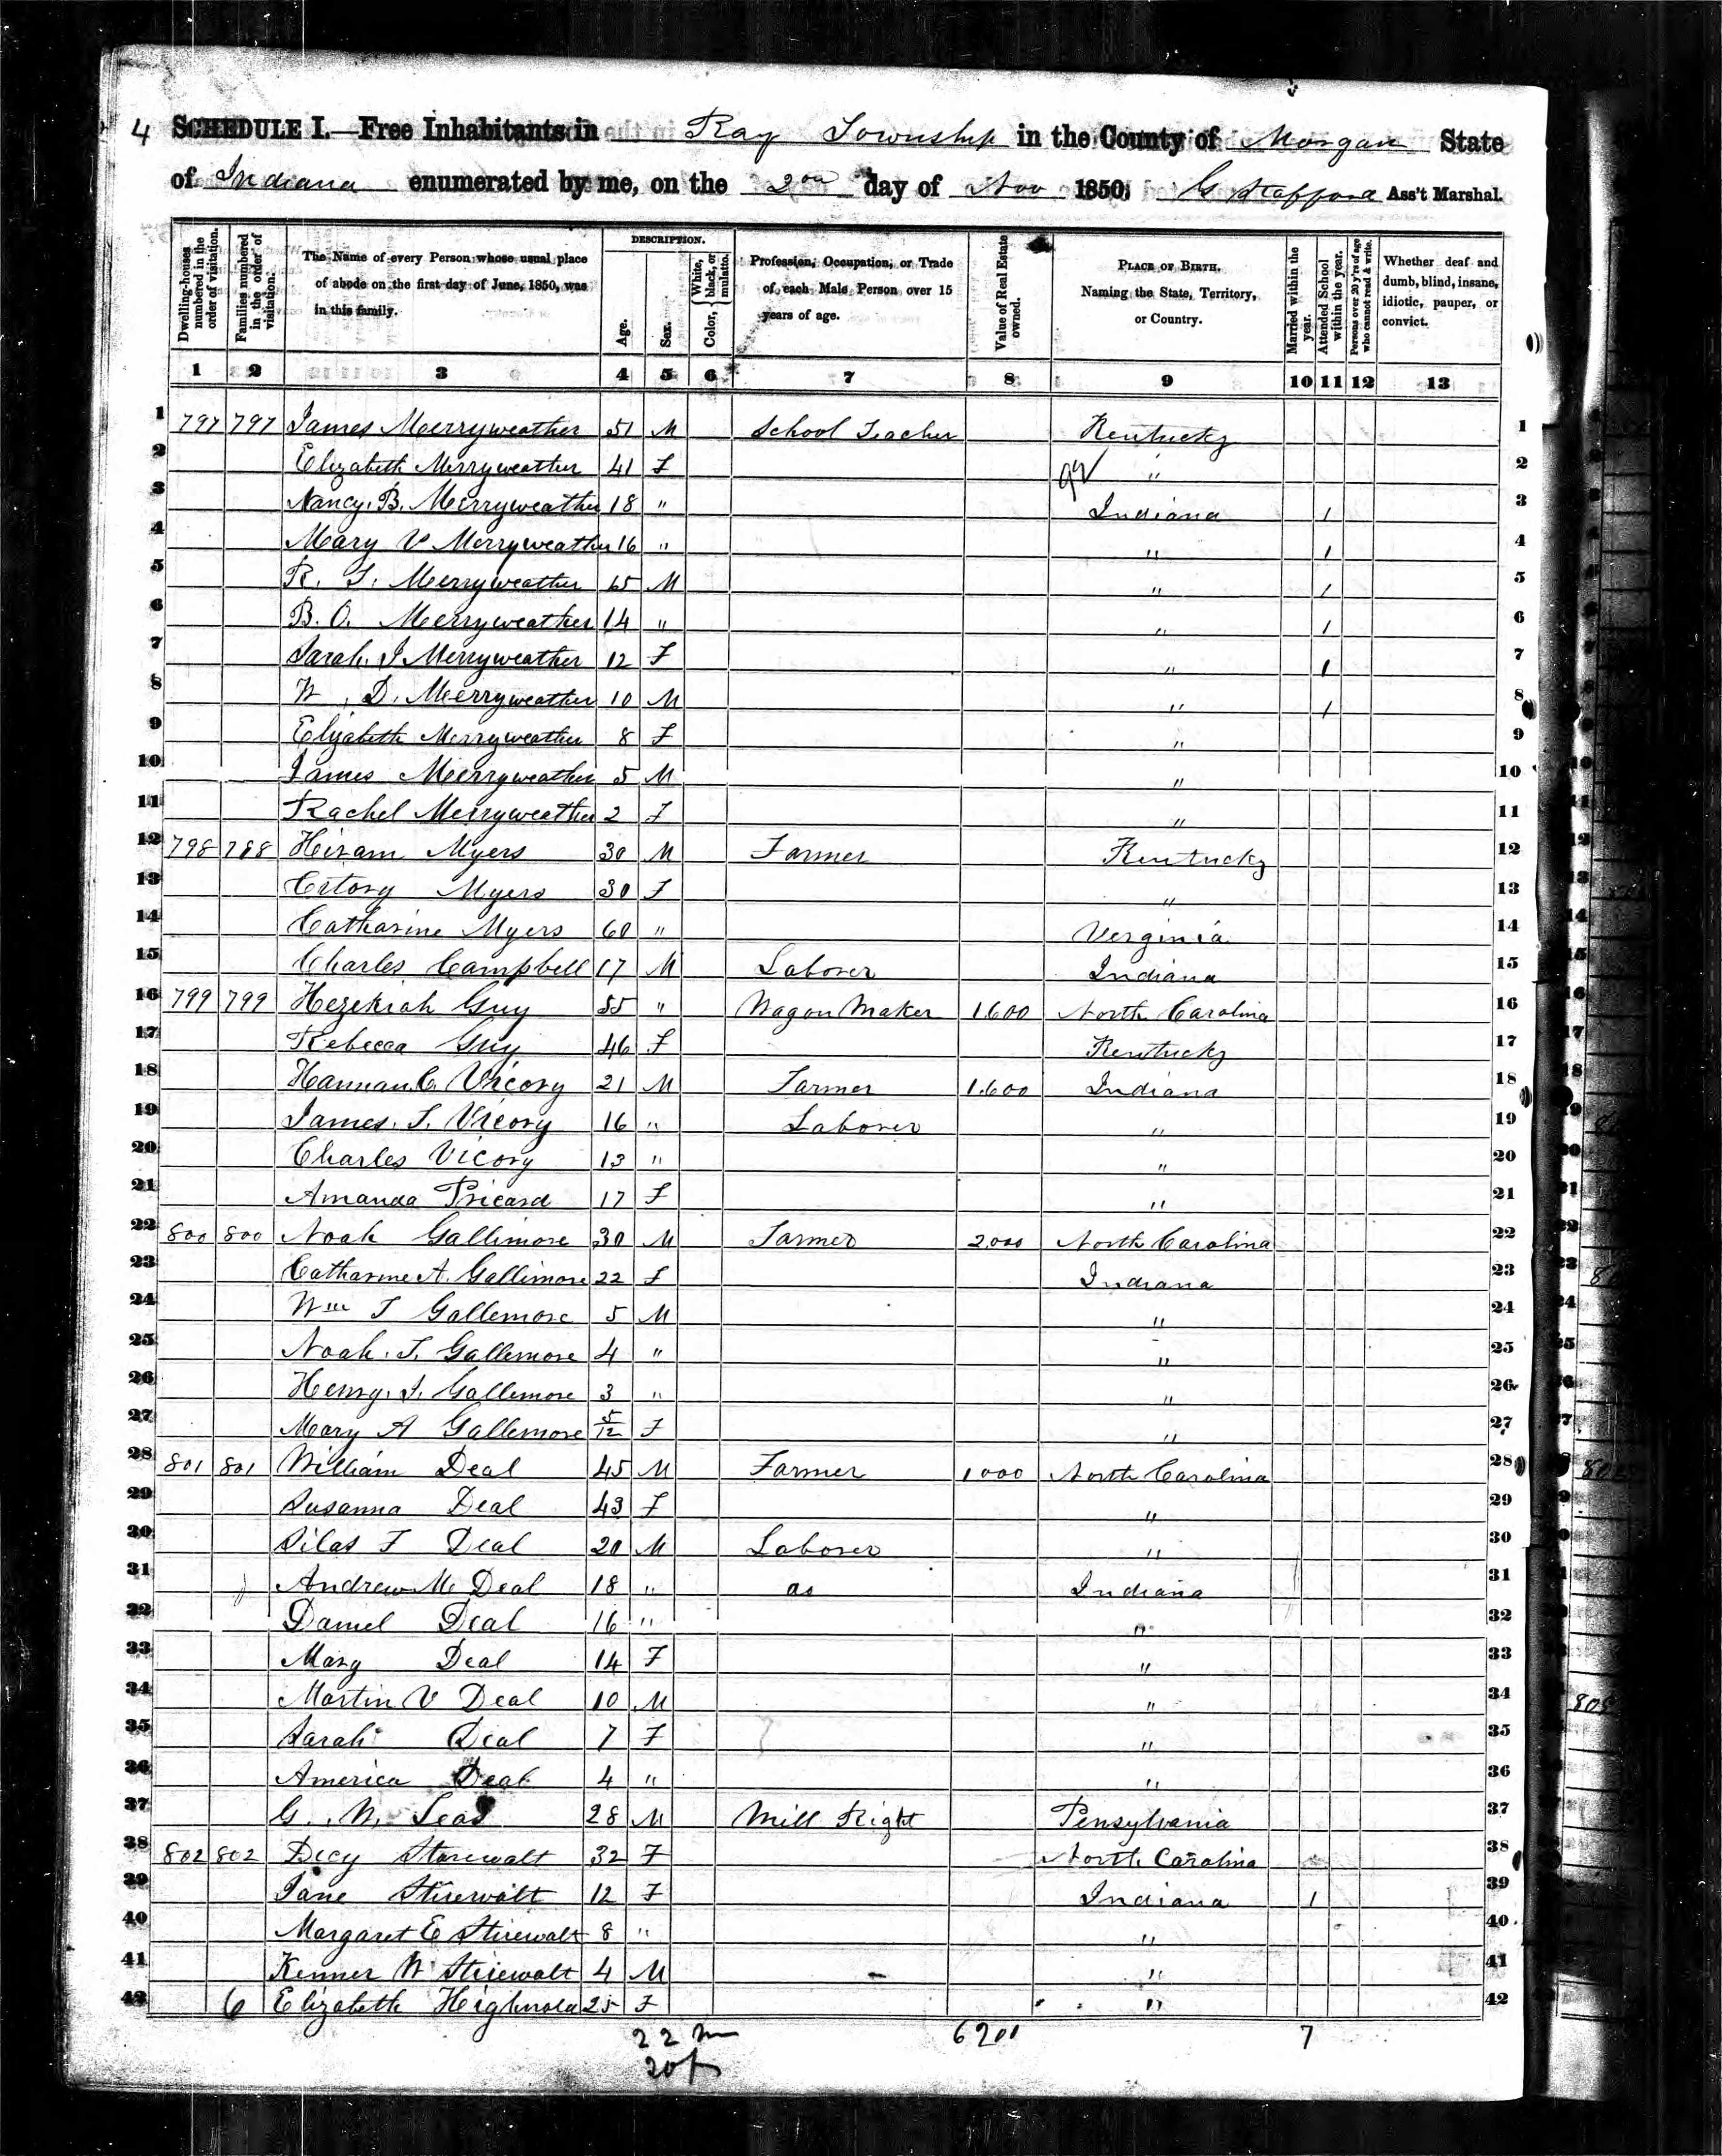 4 SCHEDULE I.—Free Inhabitants in Ray Township in the County of Morgan State
of Indiana enumerated by me, on the 2nd day of Nov 1850. G Stafford Ass't Marshal.
Dwelling-houses numbered in the order of visitation.
Families numbered in the order of visitation.
The Name of every Person whose usual place of abode on the first day of June, 1850, was in this family.
DESCRIPTION.
Age.
Sex.
Color, White, black, or mulatto.
Profession, Occupation, or Trade of each Male Person over 15 years of age.
Value of Real Estate owned.
PLACE OF BIRTH. Naming the State, Territory, or Country.
Married within the year.
Attended School within the year.
Persons over 20 y'rs of age who cannot read & write.
Whether deaf and dumb, blind, insane, idiotic, pauper, or convict.
1 2 3 4 5 6 7 8 9 10 11 12 13
1 797 797 James Merryweather 51 M School Teacher Kentucky 1
2 Elizabeth Merryweather 41 F " 2
3 Nancy B. Merryweather 18 " Indiana 1 3
4 Mary V Merryweather 16 " " 1 4
5 R. T. Merryweather 65 M " 1 5
6 B. O. Merryweather 14 " " 1 6
7 Sarah J Merryweather 12 F " 1 7
8 W. D. Merryweather 10 M " 1 8
9 Elizabeth Merryweather 8 F " 9
10 James Merryweather 5 M " 10
11 Rachel Merryweather 2 F " 11
12 798 788 Hiram Myers 30 M Farmer Kentucky 12
13 Myers 30 F " 13
14 Catharine Myers 60 " Verginia 14
15 Charles Campbell 17 M Laborer Indiana 15
16 799 799 Hezekiah Guy 55 " Wagon Maker 1.600 North Carolina 16
17 Rebecca Guy 46 F Kentucky 17
18 Hannan C. Vicory 21 M Farmer 1.600 Indiana 18
19 James. T. Vicory 16 " Laborer " 19
20 Charles Vicory 13 " " 20
21 Amanda Pricard 17 F " 21
22 800 800 Noah Gallimore 30 M Farmer 2.000 North Carolina 22
23 Catharine A. Gallimore 22 F Indiana 23
24 Wm T Gallemore 5 M " 24
25 Noah. T. Gallemore 4 " " 25
26 Henry. J. Gallemore 3 " " 26
27 Mary A Gallemore 5/12 F " 27
28 801 801 William Deal 45 M Farmer 1000 North Carolina 28
29 Susanna Deal 43 F " 29
30 Silas F Deal 20 M Laborer " 30
31 Andrew M. Deal 18 " do Indiana 31
32 Daniel Deal 16 " " 32
33 Mary Deal 14 F " 33
34 Martin V Deal 10 M " 34
35 Sarah Deal 7 F " 35
36 America Deal 4 " " 36
37 G. W. 28 M Mill Right Pensylvania 37
38 802 802 Dicy Stirewalt 32 F North Carolina 38
39 Jane Stirewalt 12 F Indiana 1 39
40 Margaret E Stirewalt 8 " " 40
41 Kenner W Stirewalt 4 M " 41
42 6 Elizabeth 25 F " 42
22 m 6201 7
20 f